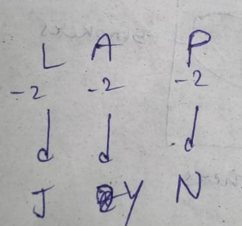 L A P
-2 -2 -2
J Y N